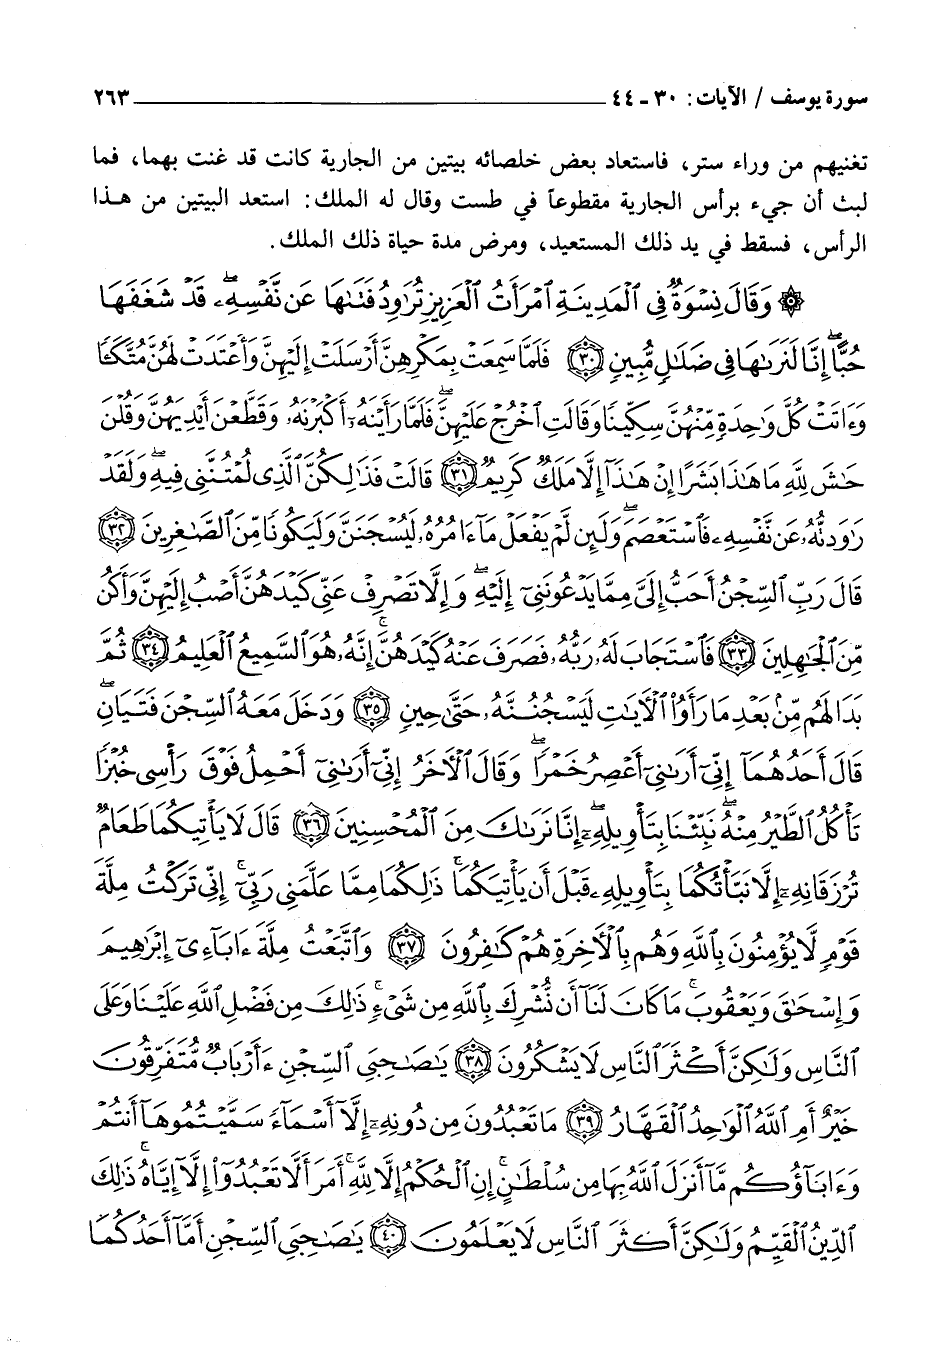 سورة يوسف / الآيات: ٣٠ - ٤٤ ٢٦٣
تغنيهم من وراء ستر، فاستعاد بعض خلصائه بيتين من الجارية كانت قد غنت بهما، فما
لبث أن جيء برأس الجارية مقطوعاً في طست وقال له الملك: استعد البيتين من هذا
الرأس، فسقط في يد ذلك المستعيد، ومرض مدة حياة ذلك الملك.
۞ وَقَالَ نِسْوَةٌ فِي ٱلْمَدِينَةِ ٱمْرَأَتُ ٱلْعَزِيزِ تُرَٰوِدُ فَتَىٰهَا عَن نَّفْسِهِۦۖ قَدْ شَغَفَهَا
حُبًّاۖ إِنَّا لَنَرَىٰهَا فِي ضَلَٰلٍ مُّبِينٍ ٣٠ فَلَمَّا سَمِعَتْ بِمَكْرِهِنَّ أَرْسَلَتْ إِلَيْهِنَّ وَأَعْتَدَتْ لَهُنَّ مُتَّكَـًٔا
وَءَاتَتْ كُلَّ وَٰحِدَةٍ مِّنْهُنَّ سِكِّينًا وَقَالَتِ ٱخْرُجْ عَلَيْهِنَّۖ فَلَمَّا رَأَيْنَهُۥٓ أَكْبَرْنَهُۥ وَقَطَّعْنَ أَيْدِيَهُنَّ وَقُلْنَ
حَٰشَ لِلَّهِ مَا هَٰذَا بَشَرًا إِنْ هَٰذَآ إِلَّا مَلَكٌ كَرِيمٌ ٣١ قَالَتْ فَذَٰلِكُنَّ ٱلَّذِي لُمْتُنَّنِي فِيهِۖ وَلَقَدْ
رَٰوَدتُّهُۥ عَن نَّفْسِهِۦ فَٱسْتَعْصَمَۖ وَلَئِن لَّمْ يَفْعَلْ مَآ ءَامُرُهُۥ لَيُسْجَنَنَّ وَلَيَكُونًا مِّنَ ٱلصَّٰغِرِينَ ٣٢
قَالَ رَبِّ ٱلسِّجْنُ أَحَبُّ إِلَيَّ مِمَّا يَدْعُونَنِيٓ إِلَيْهِۖ وَإِلَّا تَصْرِفْ عَنِّي كَيْدَهُنَّ أَصْبُ إِلَيْهِنَّ وَأَكُن
مِّنَ ٱلْجَٰهِلِينَ ٣٣ فَٱسْتَجَابَ لَهُۥ رَبُّهُۥ فَصَرَفَ عَنْهُ كَيْدَهُنَّۚ إِنَّهُۥ هُوَ ٱلسَّمِيعُ ٱلْعَلِيمُ ٣٤ ثُمَّ
بَدَا لَهُم مِّنۢ بَعْدِ مَا رَأَوُا۟ ٱلْآيَٰتِ لَيَسْجُنُنَّهُۥ حَتَّىٰ حِينٍ ٣٥ وَدَخَلَ مَعَهُ ٱلسِّجْنَ فَتَيَانِۖ
قَالَ أَحَدُهُمَآ إِنِّيٓ أَرَىٰنِيٓ أَعْصِرُ خَمْرًاۖ وَقَالَ ٱلْآخَرُ إِنِّيٓ أَرَىٰنِيٓ أَحْمِلُ فَوْقَ رَأْسِي خُبْزًا
تَأْكُلُ ٱلطَّيْرُ مِنْهُۖ نَبِّئْنَا بِتَأْوِيلِهِۦٓۖ إِنَّا نَرَىٰكَ مِنَ ٱلْمُحْسِنِينَ ٣٦ قَالَ لَا يَأْتِيكُمَا طَعَامٌ
تُرْزَقَانِهِۦٓ إِلَّا نَبَّأْتُكُمَا بِتَأْوِيلِهِۦ قَبْلَ أَن يَأْتِيَكُمَاۚ ذَٰلِكُمَا مِمَّا عَلَّمَنِي رَبِّيٓۚ إِنِّي تَرَكْتُ مِلَّةَ
قَوْمٍ لَّا يُؤْمِنُونَ بِٱللَّهِ وَهُم بِٱلْآخِرَةِ هُمْ كَٰفِرُونَ ٣٧ وَٱتَّبَعْتُ مِلَّةَ ءَابَآءِيٓ إِبْرَٰهِيمَ
وَإِسْحَٰقَ وَيَعْقُوبَۚ مَا كَانَ لَنَآ أَن نُّشْرِكَ بِٱللَّهِ مِن شَيْءٍۚ ذَٰلِكَ مِن فَضْلِ ٱللَّهِ عَلَيْنَا وَعَلَى
ٱلنَّاسِ وَلَٰكِنَّ أَكْثَرَ ٱلنَّاسِ لَا يَشْكُرُونَ ٣٨ يَٰصَىٰحِبَيِ ٱلسِّجْنِ ءَأَرْبَابٌ مُّتَفَرِّقُونَ
خَيْرٌ أَمِ ٱللَّهُ ٱلْوَٰحِدُ ٱلْقَهَّارُ ٣٩ مَا تَعْبُدُونَ مِن دُونِهِۦٓ إِلَّآ أَسْمَآءً سَمَّيْتُمُوهَآ أَنتُمْ
وَءَابَآؤُكُم مَّآ أَنزَلَ ٱللَّهُ بِهَا مِن سُلْطَٰنٍۚ إِنِ ٱلْحُكْمُ إِلَّا لِلَّهِۚ أَمَرَ أَلَّا تَعْبُدُوٓا۟ إِلَّآ إِيَّاهُۚ ذَٰلِكَ
ٱلدِّينُ ٱلْقَيِّمُ وَلَٰكِنَّ أَكْثَرَ ٱلنَّاسِ لَا يَعْلَمُونَ ٤٠ يَٰصَىٰحِبَيِ ٱلسِّجْنِ أَمَّآ أَحَدُكُمَا